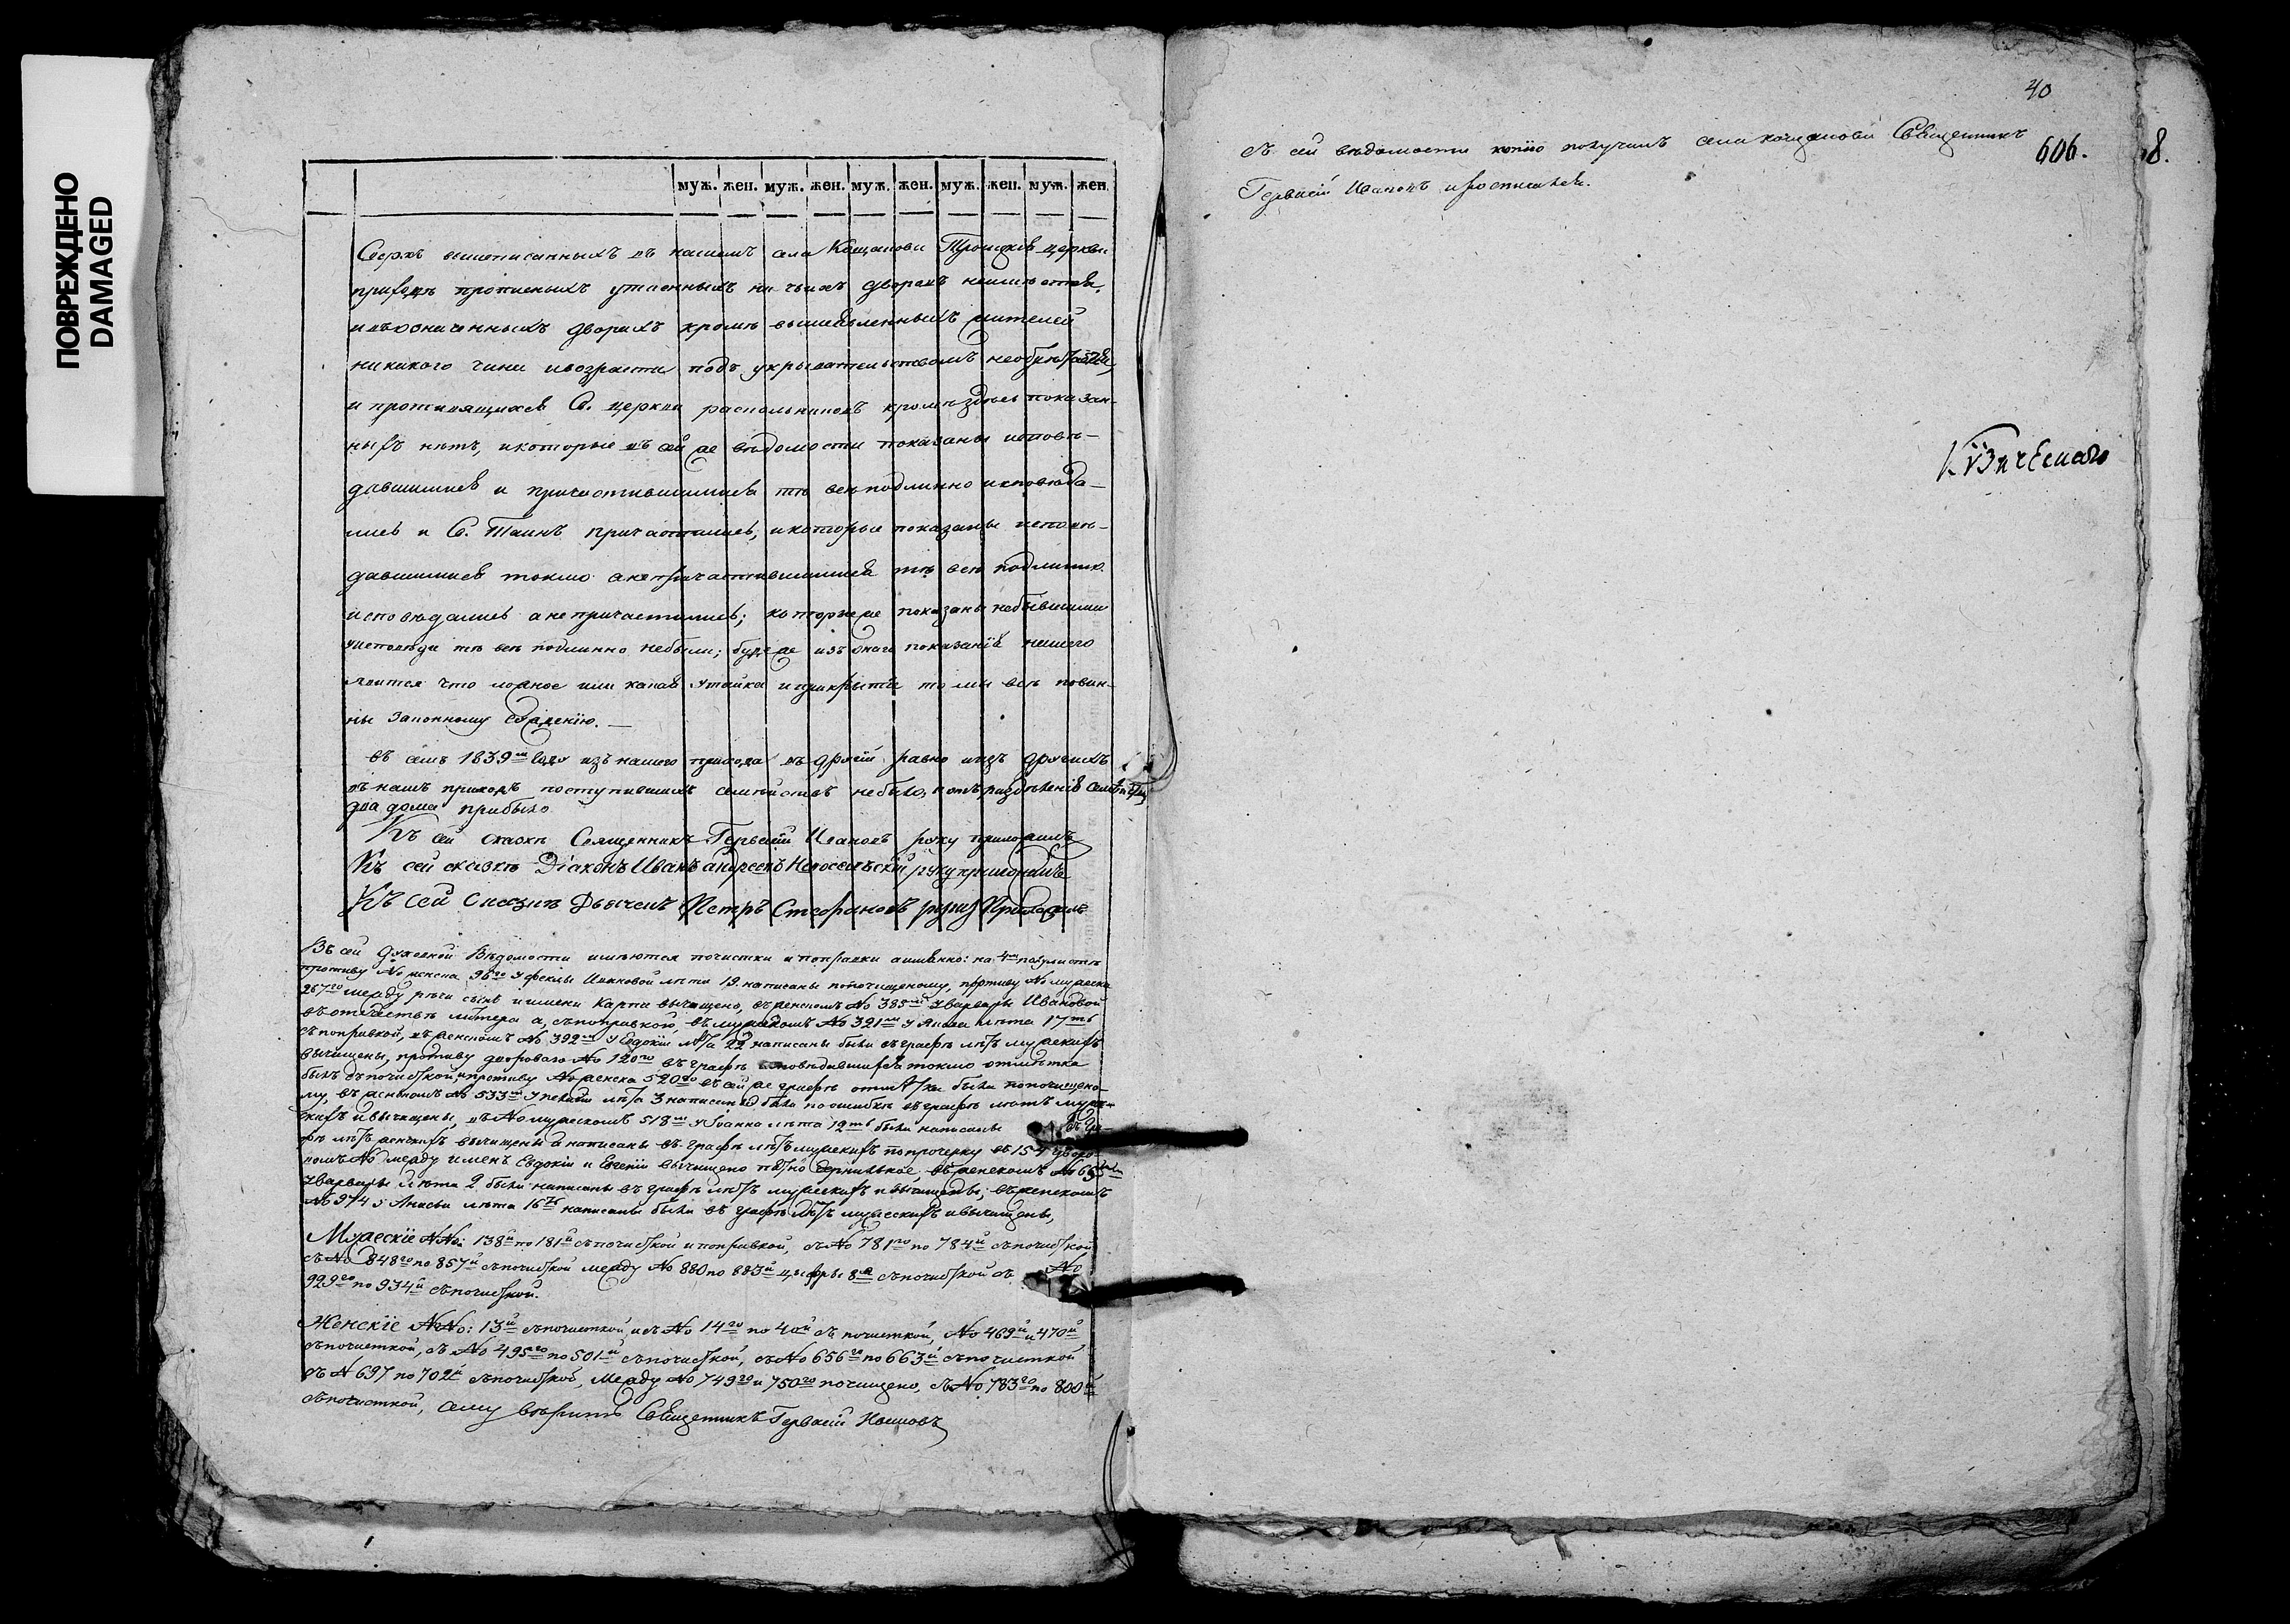 ПОВРЕЖДЕНО
DAMAGED
муж. жен. муж. жен. муж. жен. муж. жен. муж. жен.
Сверхъ вышеписанныхъ въ нашемъ села Кощакови Троицкія церкви
приходѣ прописныхъ утаенныхъ ни чьихъ дворовъ неимѣется,
ивъозначенныхъ дворахъ кромѣ вышеявленныхъ жителей
никакого чина ивозраста подъ укрывательствомъ необрѣтается,
и противящихся С. церкви раскольниковъ кромѣ здѣсь показан-
ныхъ нѣтъ, икоторые въ сей же вѣдомости показаны исповѣ-
давшимися и причастившимися тѣ всѣ подлинно исповѣда-
лись и С. Таинъ причастились, икоторые показаны исповѣ-
давшимися токмо анепричастившимися тѣ всѣ подлинно
исповѣдались анепричастились; которые же показаны небывшими
уисповѣди тѣ всѣ подлинно небыли; буде же изъ онаго показанія нашего
явится что ложное или какая утайка иприкрытіе то мы всѣ повин-
ны законному сужденію. —
Въ семъ 1839мъ году изъ нашего прихода въ другій равно иизъ другихъ
въ нашъ приходъ поступившихъ семействъ небыло, иотъ раздѣленія
два дома прибыло
Къ сей сказкѣ Священникъ Гервасій Ивановъ руку приложилъ
Къ сей сказкѣ Діаконъ Иванъ андреевъ руку приложилъ
Къ сей Сказкѣ Дьячекъ Петръ Стефановъ руку Приложилъ
Въ сей Духовной Вѣдомости имѣются почистки и поправки аимянно: на 4мъ полулистѣ
противу № женска 96го у феклы Ивановой лѣта 19. написаны попочищеному, противу № мужеска
267го между рѣчи сынъ и имени Карпа вычищено, въженскомъ № 385мъ уварвары Ивановой
въотчествѣ литера а, съпоправкою, въмужескомъ № 321мъ у лѣта 17ть
съпоправкой, въженскомъ № 392мъ у Евдокіи лѣта 22 написаны были въграфѣ лѣтъ мужескихъ
вычищены, противу двороваго № 120го въграфѣ исповѣдавшихся токмо отмѣтка
была съпочисткой, ипротиву № женска 520го въсей же графѣ отмѣтка была попочищено-
му, въженскомъ № 533мъ у лѣта 3 написаны были поошибкѣ въграфѣ лѣтъ муже-
скихъ ивычищены, въ № мужескомъ 518мъ уІоанна лѣта 12ть были написаны въ гра-
фѣ лѣтъ женскихъ вычищены а написаны въ графѣ лѣтъ мужескихъ попрочерку въ 154 дворо-
вомъ № между именъ Евдокіи и Евгеніи вычищено пятно чернильное, въженскомъ № 655мъ
уварвары лѣта 2 были написаны въ графѣ лѣтъ мужескихъ и вычищены; въженскомъ
№ 974 у Анисьи лѣта 16ть написаны были въ графѣ лѣтъ мужескихъ ивычищены,
Мужескіе №№: 138й по 181й съпочисткой и поправкой, съ № 781го по 784й съпочисткой
съ № 848го по 857й съпочисткой между № 880 по 883й цыфры 8я съпочисткой съ №
929го по 934й съпочисткой.
Женскіе №№: 13й съпочисткой, исъ № 14го по 40й съ почисткой, № 469й и 470й
съпочисткой, съ № 495го по 501й съпочисткой, съ № 656го по 663й съпочисткой
съ № 697 по 702й съпочисткой, Между № 749го и 750го почищено, съ № 783го по 800й
съпочисткой, Священникъ Гервасій Ивановъ
40
606.
8.
Съ сей вѣдомости копію получилъ села кощакови Священникъ
Гервасій Ивановъ иросписался.